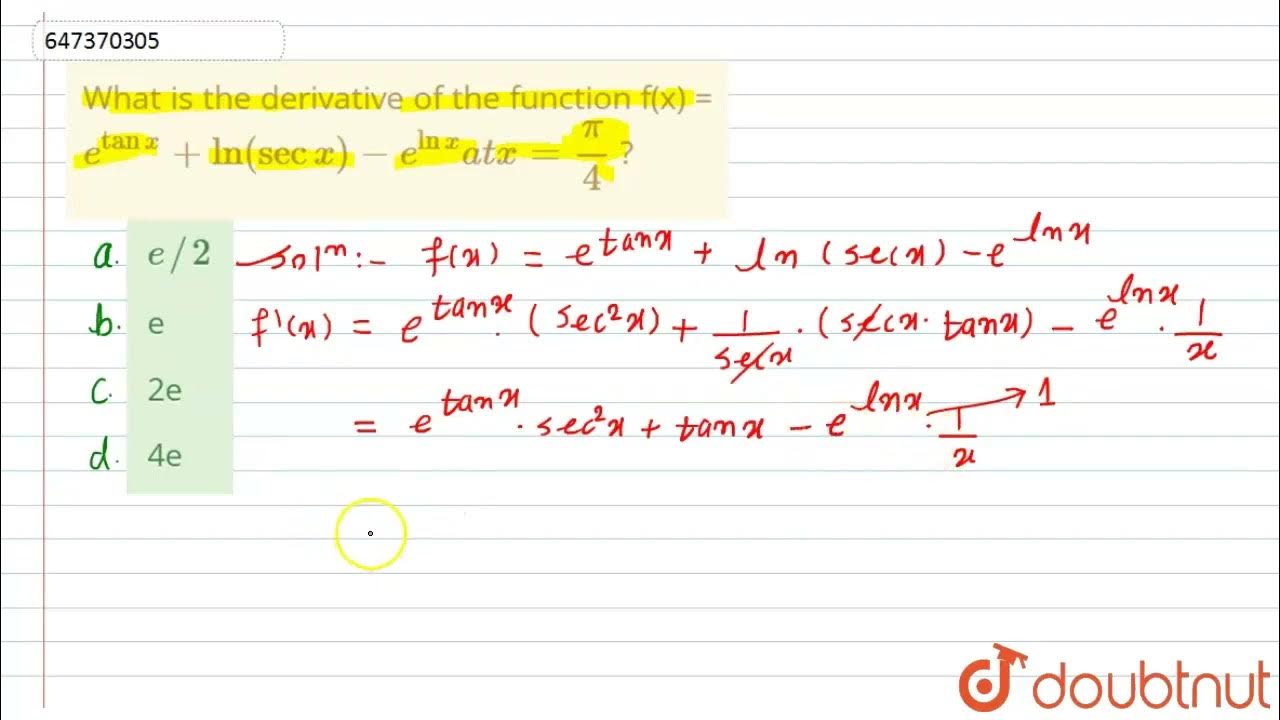 647370305
What is the derivative of the function f(x) =
e^{tan x} + ln(sec x) − e^{ln x} atx = π/4 ?
a. e/2
Solⁿ:- f(x) = e^{tanx} + ln (sec x) - e^{lnx}
b. e
f'(x) = e^{tanx}. (sec²x) + 1/secx . (secx. tanx) - e^{lnx}. 1/x
c. 2e
= e^{tanx}. sec²x + tanx - e^{lnx}. 1/x → 1
d. 4e
doubtnut